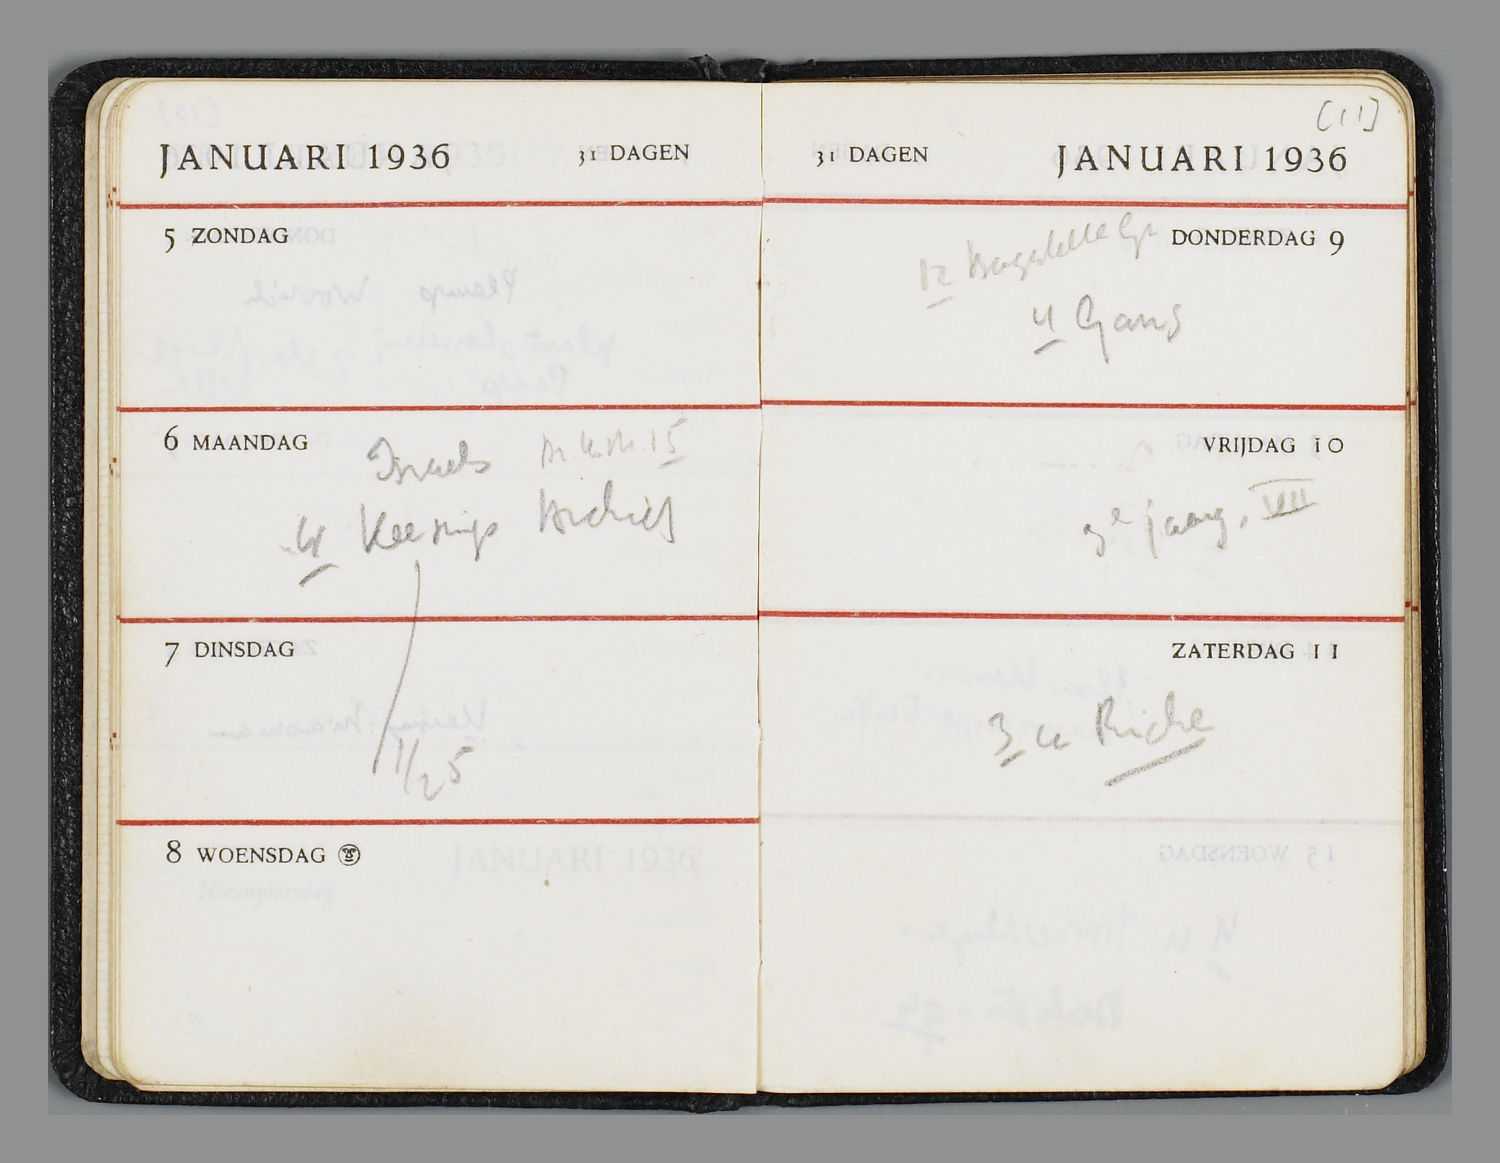 JANUARI 1936 31 DAGEN
5 ZONDAG
6 MAANDAG
Israels 15
4 Keesings Archief
7 DINSDAG
1/25
8 WOENSDAG
[11]
31 DAGEN JANUARI 1936
DONDERDAG 9
12
4 Gans
VRIJDAG 10
3e jaarg. VII
ZATERDAG 11
3 u Riche